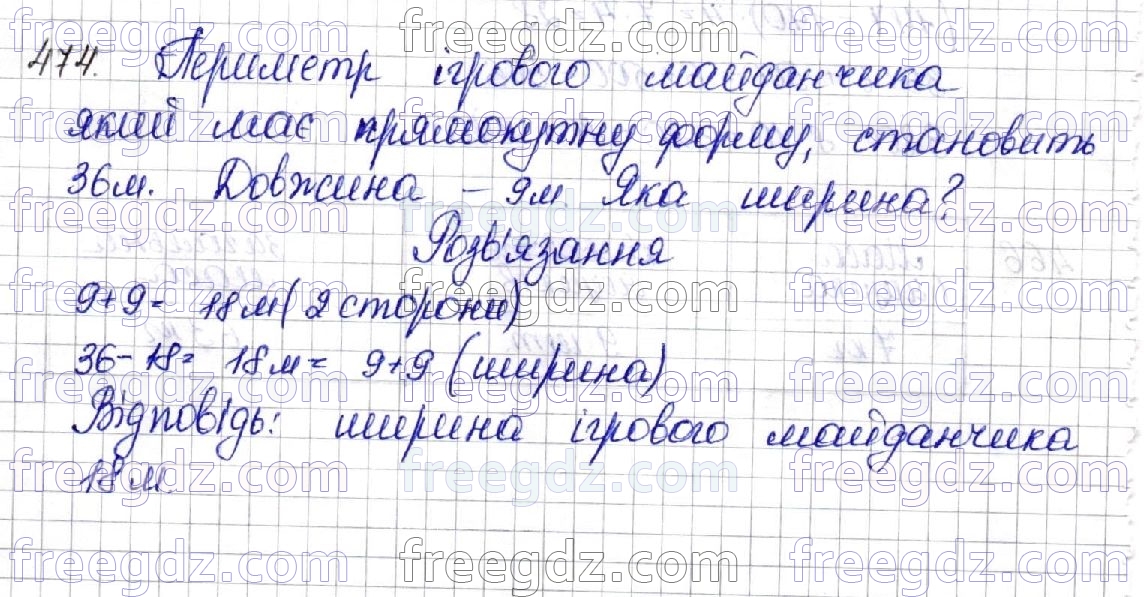 474. Периметр ігрового майданчика
який має прямокутну форму, становить
36м. Довжина – 9м. Яка ширина?
Розв'язання
9+9= 18м (2 сторони)
36-18= 18м = 9+9 (ширина)
Відповідь: ширина ігрового майданчика
18м.
freegdz.com